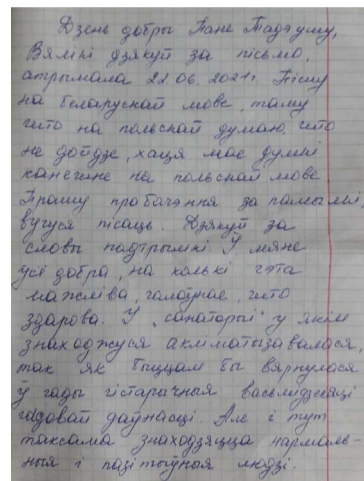 Дзень добры Пане Тадэушу,
Вялікі дзякуй за пісьмо,
атрымала 22.06.2021г. Пішу
на беларускай мове, таму
што на польскай думаю, что
не дойдзе, хаця мае думкі
канечине на польскай мове.
Прашу прабачэння за памылкі,
вучуся пісаць. Дзякуй за
словы падтрымкі. У мяне
усё добра, на колькі гэта
мажліва, галоўнае, што
здарова. У „санаторыі" у якім
знаходжуся акліматызавалася,
так як быццам бы вярнулася
ў гады гістарычныя васьмідзесяці
гадовай даўнасці. Але і тут
таксама знаходзяцца нармаль-
ныя і пазітыўныя людзі.